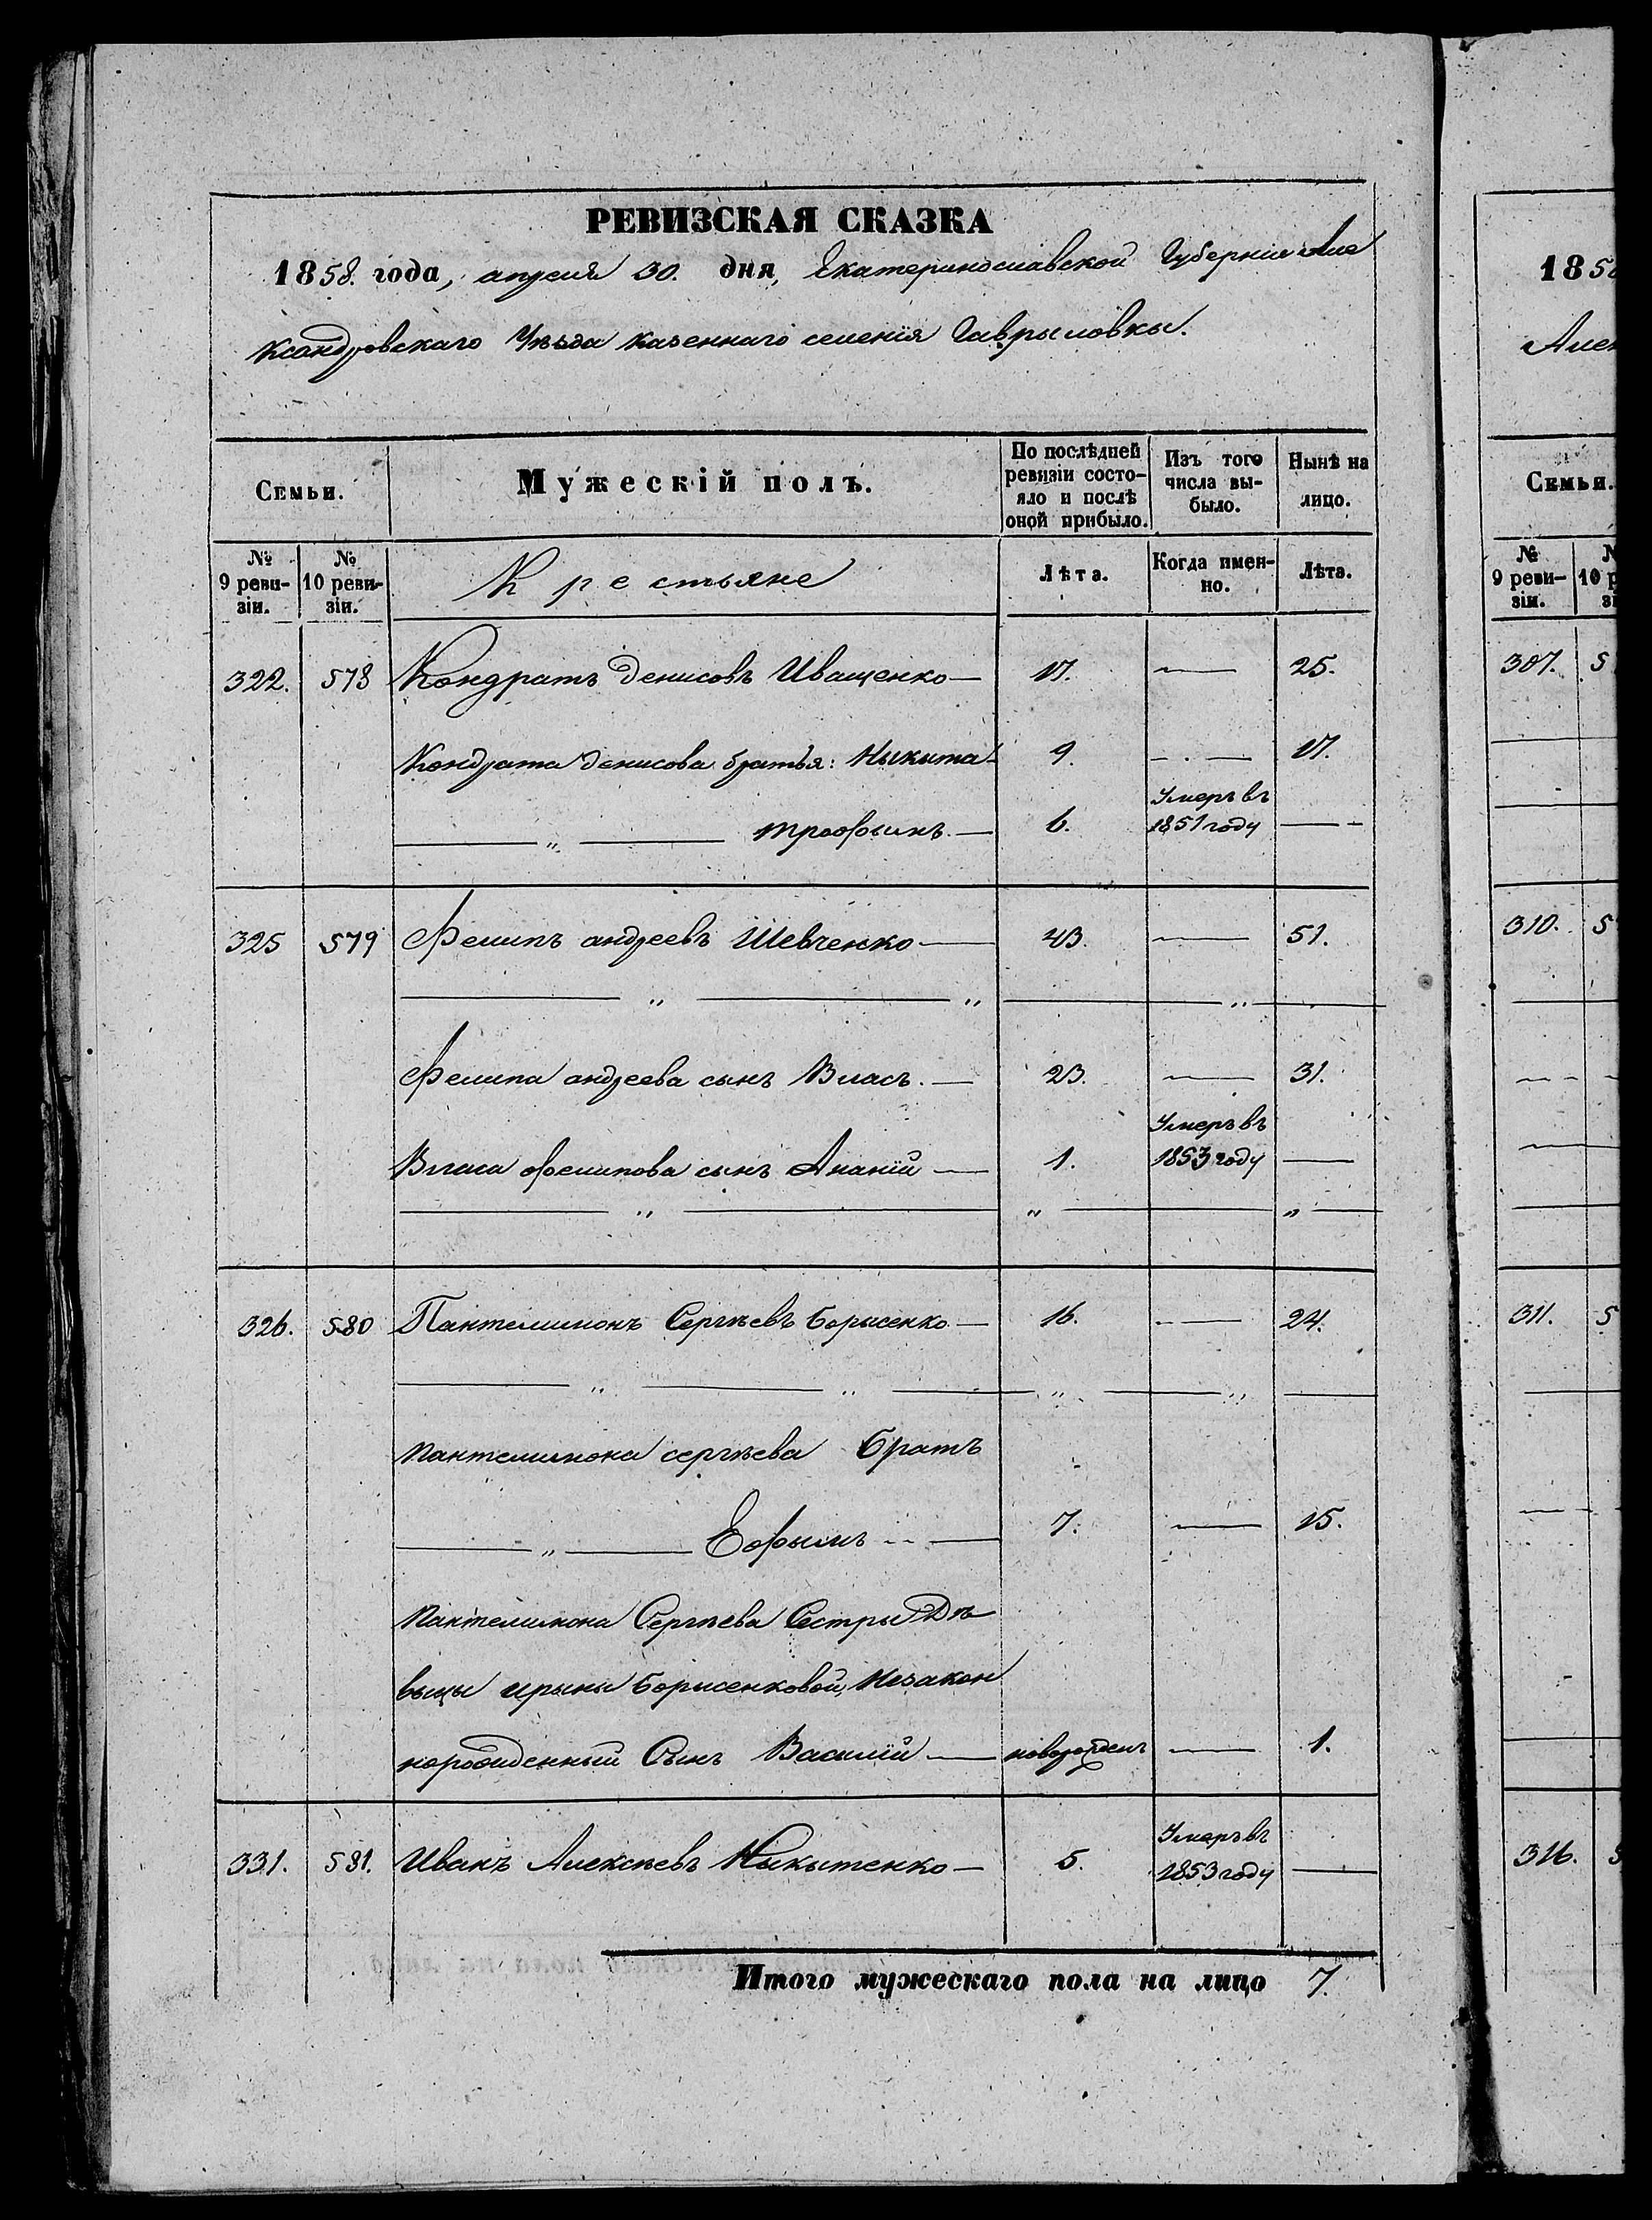 РЕВИЗСКАЯ СКАЗКА
1858. года, апреля 30. дня, Екатеринославской Губернии Але
ксандровскаго Уѣзда казеннаго селенія Гаврыловкы.
Семьи.
Мужескій полъ.
По послѣдней ревизіи состояло и послѣ оной прибыло.
Изъ того числа выбыло.
Нынѣ на лицо.
№ 9 ревизіи.
№ 10 ревизіи.
Крестьяне
Лѣта.
Когда именно.
Лѣта.
322. 578 Кондратъ Денисовъ Иващенко — 17. — 25.
Кондрата Денисова братья: Никита 9. — 17.
— „ — Трофымъ. — 6. Умеръ въ 1851 году —
325 579 Фелипъ андреевъ Шевченко — 43. — 51.
— „ — „ — „ —
Фелипа андреева сынъ Власъ. — 23. — 31.
Власа фелипова сынъ Ананій — 1. Умеръ въ 1853 году —
— „ — „ — „ —
326. 580 Пантелимонъ Сергѣевъ Борисенко — 16. — 24.
— „ — „ — „ — „ —
Пантелимона сергѣева Братъ
— „ — Ефымъ — 7. — 15.
Пантелимона Сергѣева Сестры Дѣ
выцы ирыны Борисенковой, Незакон
норожденный Сынъ Василій — новорожденъ — 1.
331. 581. Иванъ Алексѣевъ Никытенко — 5. Умеръ въ 1853 году —
Итого мужескаго пола на лицо 7.
185
Алек
Семьи.
№ 9 ревизіи.
10 р
307. 5
310. 5
311. 5
316.